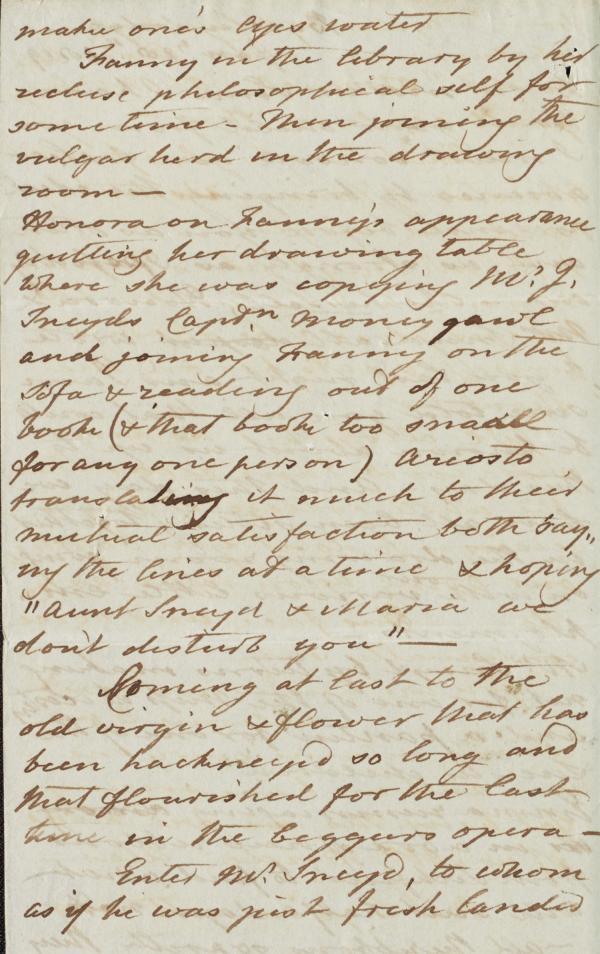 make one's eyes water
Fanny in the library by her
recluse philosophical self for
some time - then joining the
vulgar herd in the drawing
room —
Honora on Fanny's appearance
quitting her drawing table
where she was copying Mr. J.
Sneyds Captn. Moneygawl
and joining Fanny on the
Sofa & reading out of one
book (& that book too small
for any one person) Ariosto
translating it much to their
mutual satisfaction both say„
ing the lines at a time & hoping
"Aunt Sneyd & Maria we
don't disturb you" —
Coming at last to the
old virgin & flower that has
been hackney'd so long and
that flourished for the last
time in the beggars opera —
Enter Mr. Sneyd, to whom
as if he was just fresh landed